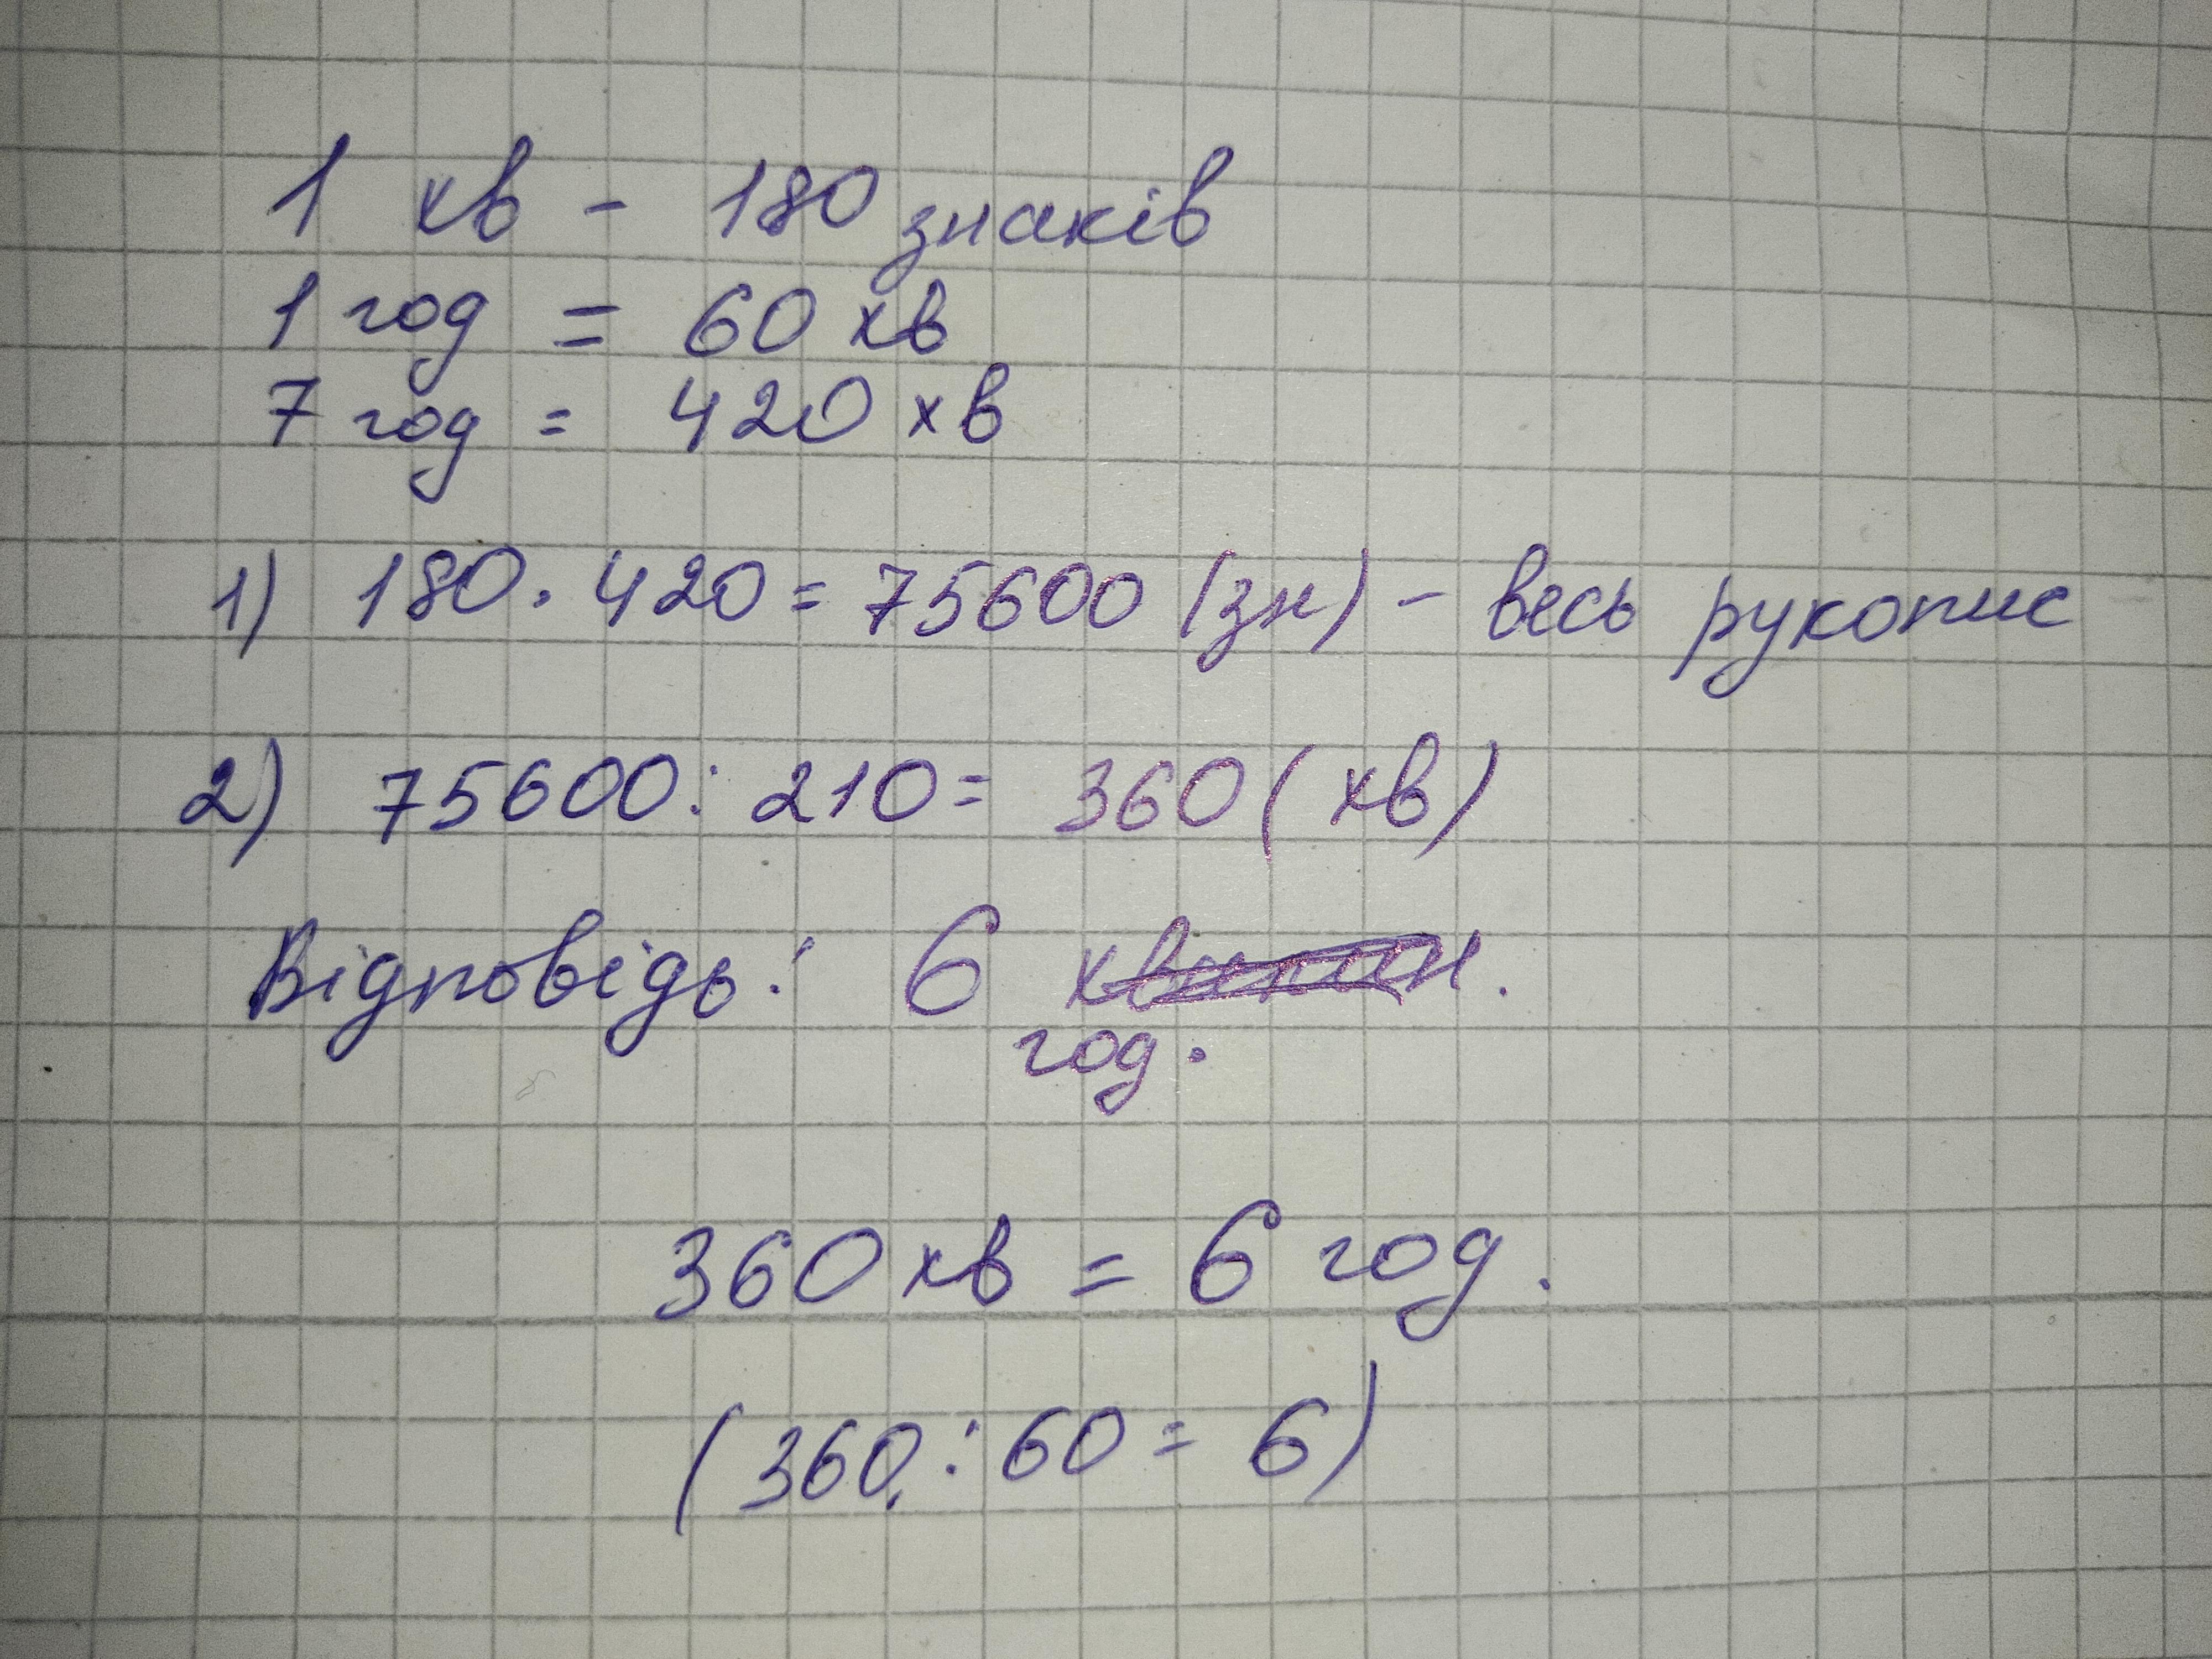 1 хв - 180 знаків
1 год = 60 хв
7 год = 420 хв
1) 180 · 420 = 75600 (зн) - весь рукопис
2) 75600 : 210 = 360 (хв)
Відповідь: 6 хвилин.
год.
360 хв = 6 год.
(360 : 60 = 6)